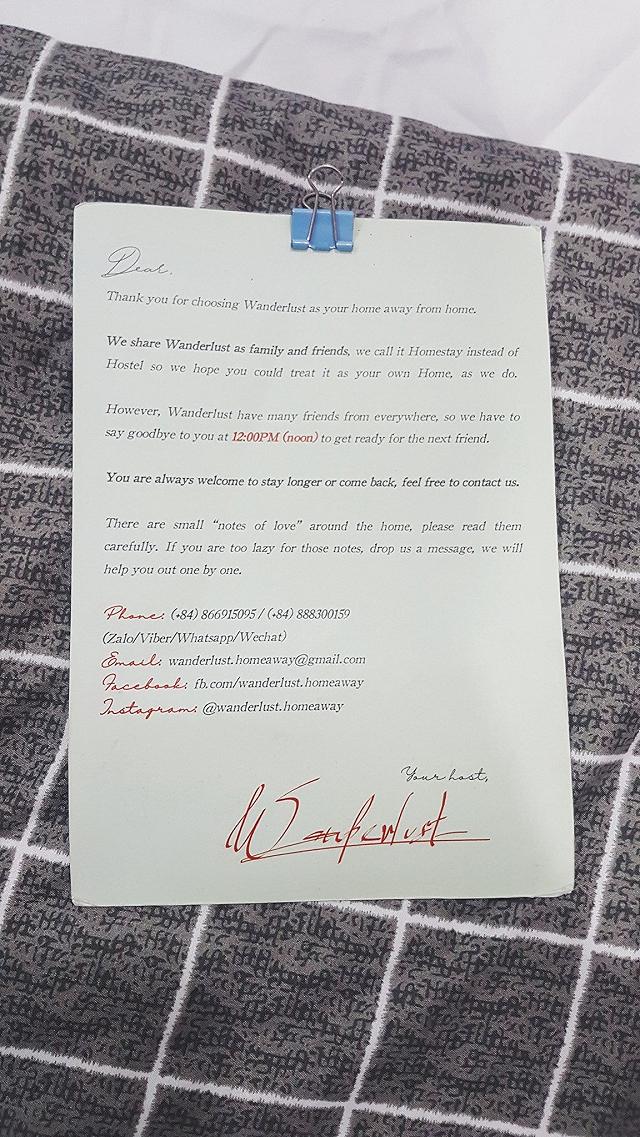 Dear,
Thank you for choosing Wanderlust as your home away from home.
We share Wanderlust as family and friends, we call it Homestay instead of
Hostel so we hope you could treat it as your own Home, as we do.
However, Wanderlust have many friends from everywhere, so we have to
say goodbye to you at 12:00PM (noon) to get ready for the next friend.
You are always welcome to stay longer or come back, feel free to contact us.
There are small “notes of love” around the home, please read them
carefully. If you are too lazy for those notes, drop us a message, we will
help you out one by one.
Phone: (+84) 866915095 / (+84) 888300159
(Zalo/Viber/Whatsapp/Wechat)
Email: wanderlust.homeaway@gmail.com
Facebook: fb.com/wanderlust.homeaway
Instagram: @wanderlust.homeaway
Your host,
Wanderlust